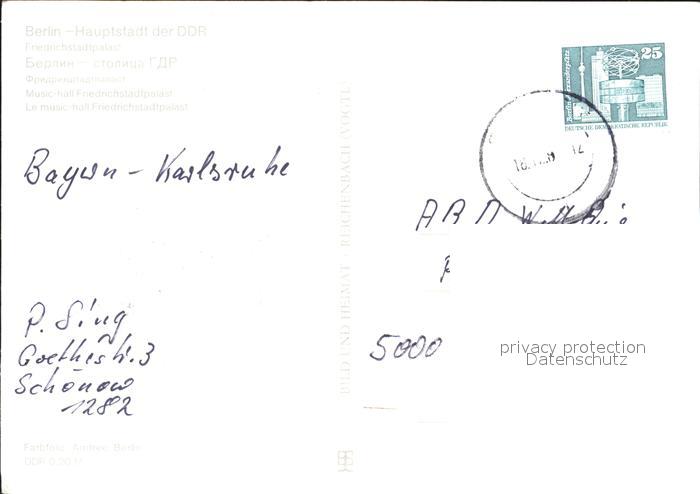 Berlin – Hauptstadt der DDR
Friedrichstadtpalast
Берлин – столица ГДР
Фридрихштадтпаласт
Music-hall Friedrichstadtpalast
Le music-hall Friedrichstadtpalast
Bayern – Karlsruhe
P. Sing
Goethestr. 3
Schönow
1282
Berlin
DDR 0,20 M
BILD UND HEIMAT · REICHENBACH (VOGTL)
25
Berlin, Alexanderplatz
DEUTSCHE DEMOKRATISCHE REPUBLIK
12
ARD
5000
privacy protection
Datenschutz